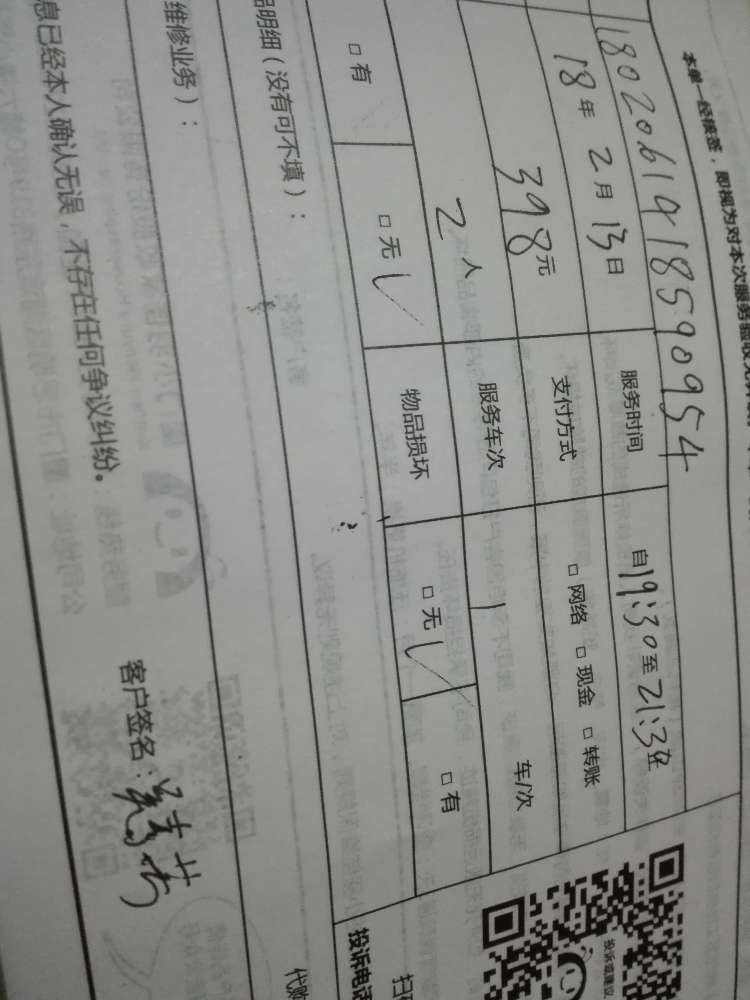 本单一经核签，即视为对本次服务验收
1802061418590954
18年2月13日 服务时间 自19:30至21:3
398元 支付方式 □ 网络 □ 现金 □ 转账
2人 服务车次 1 车/次
□ 有 □ 无 √ 物品损坏 □ 无 √ □ 有
品明细（没有可不填）：
维修业务）：
息已经本人确认无误，不存在任何争议纠纷。
客户签名：
投诉或建议
投诉电话
扫
代购